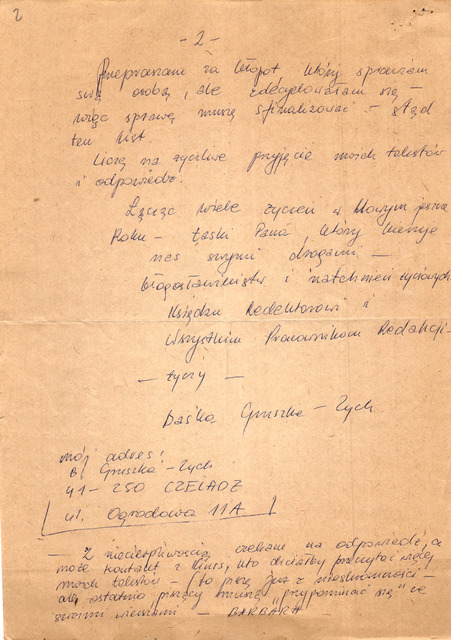 2
- 2 -
Przepraszam za kłopot który sprawiam
swą osobą, ale zdecydowałam się -
więc sprawę muszę sfinalizować - stąd
ten list.
Liczę na życzliwe przyjęcie moich tekstów
i odpowiedź.
Łącząc wiele życzeń w Nowym
Roku - Łaski Pana, który kieruje
nas swymi drogami -
błogosławieństw i natchnień życiowych
Księdzu Redaktorowi i
Wszystkim Pracownikom Redakcji -
- życzy -
Baśka Gruszka-Zych
mój adres:
B. Gruszka-Zych
41-250 CZELADŹ
ul. Ogrodowa 11A
- Z niecierpliwością czekam na odpowiedź, a
może kontakt z kimś, kto chciałby przeczytać więcej
moich tekstów - (to piszę już z nieśmiałości -
ale ostatnio piszący muszą "przypominać się" ze
swoimi wierszami - BARBARA